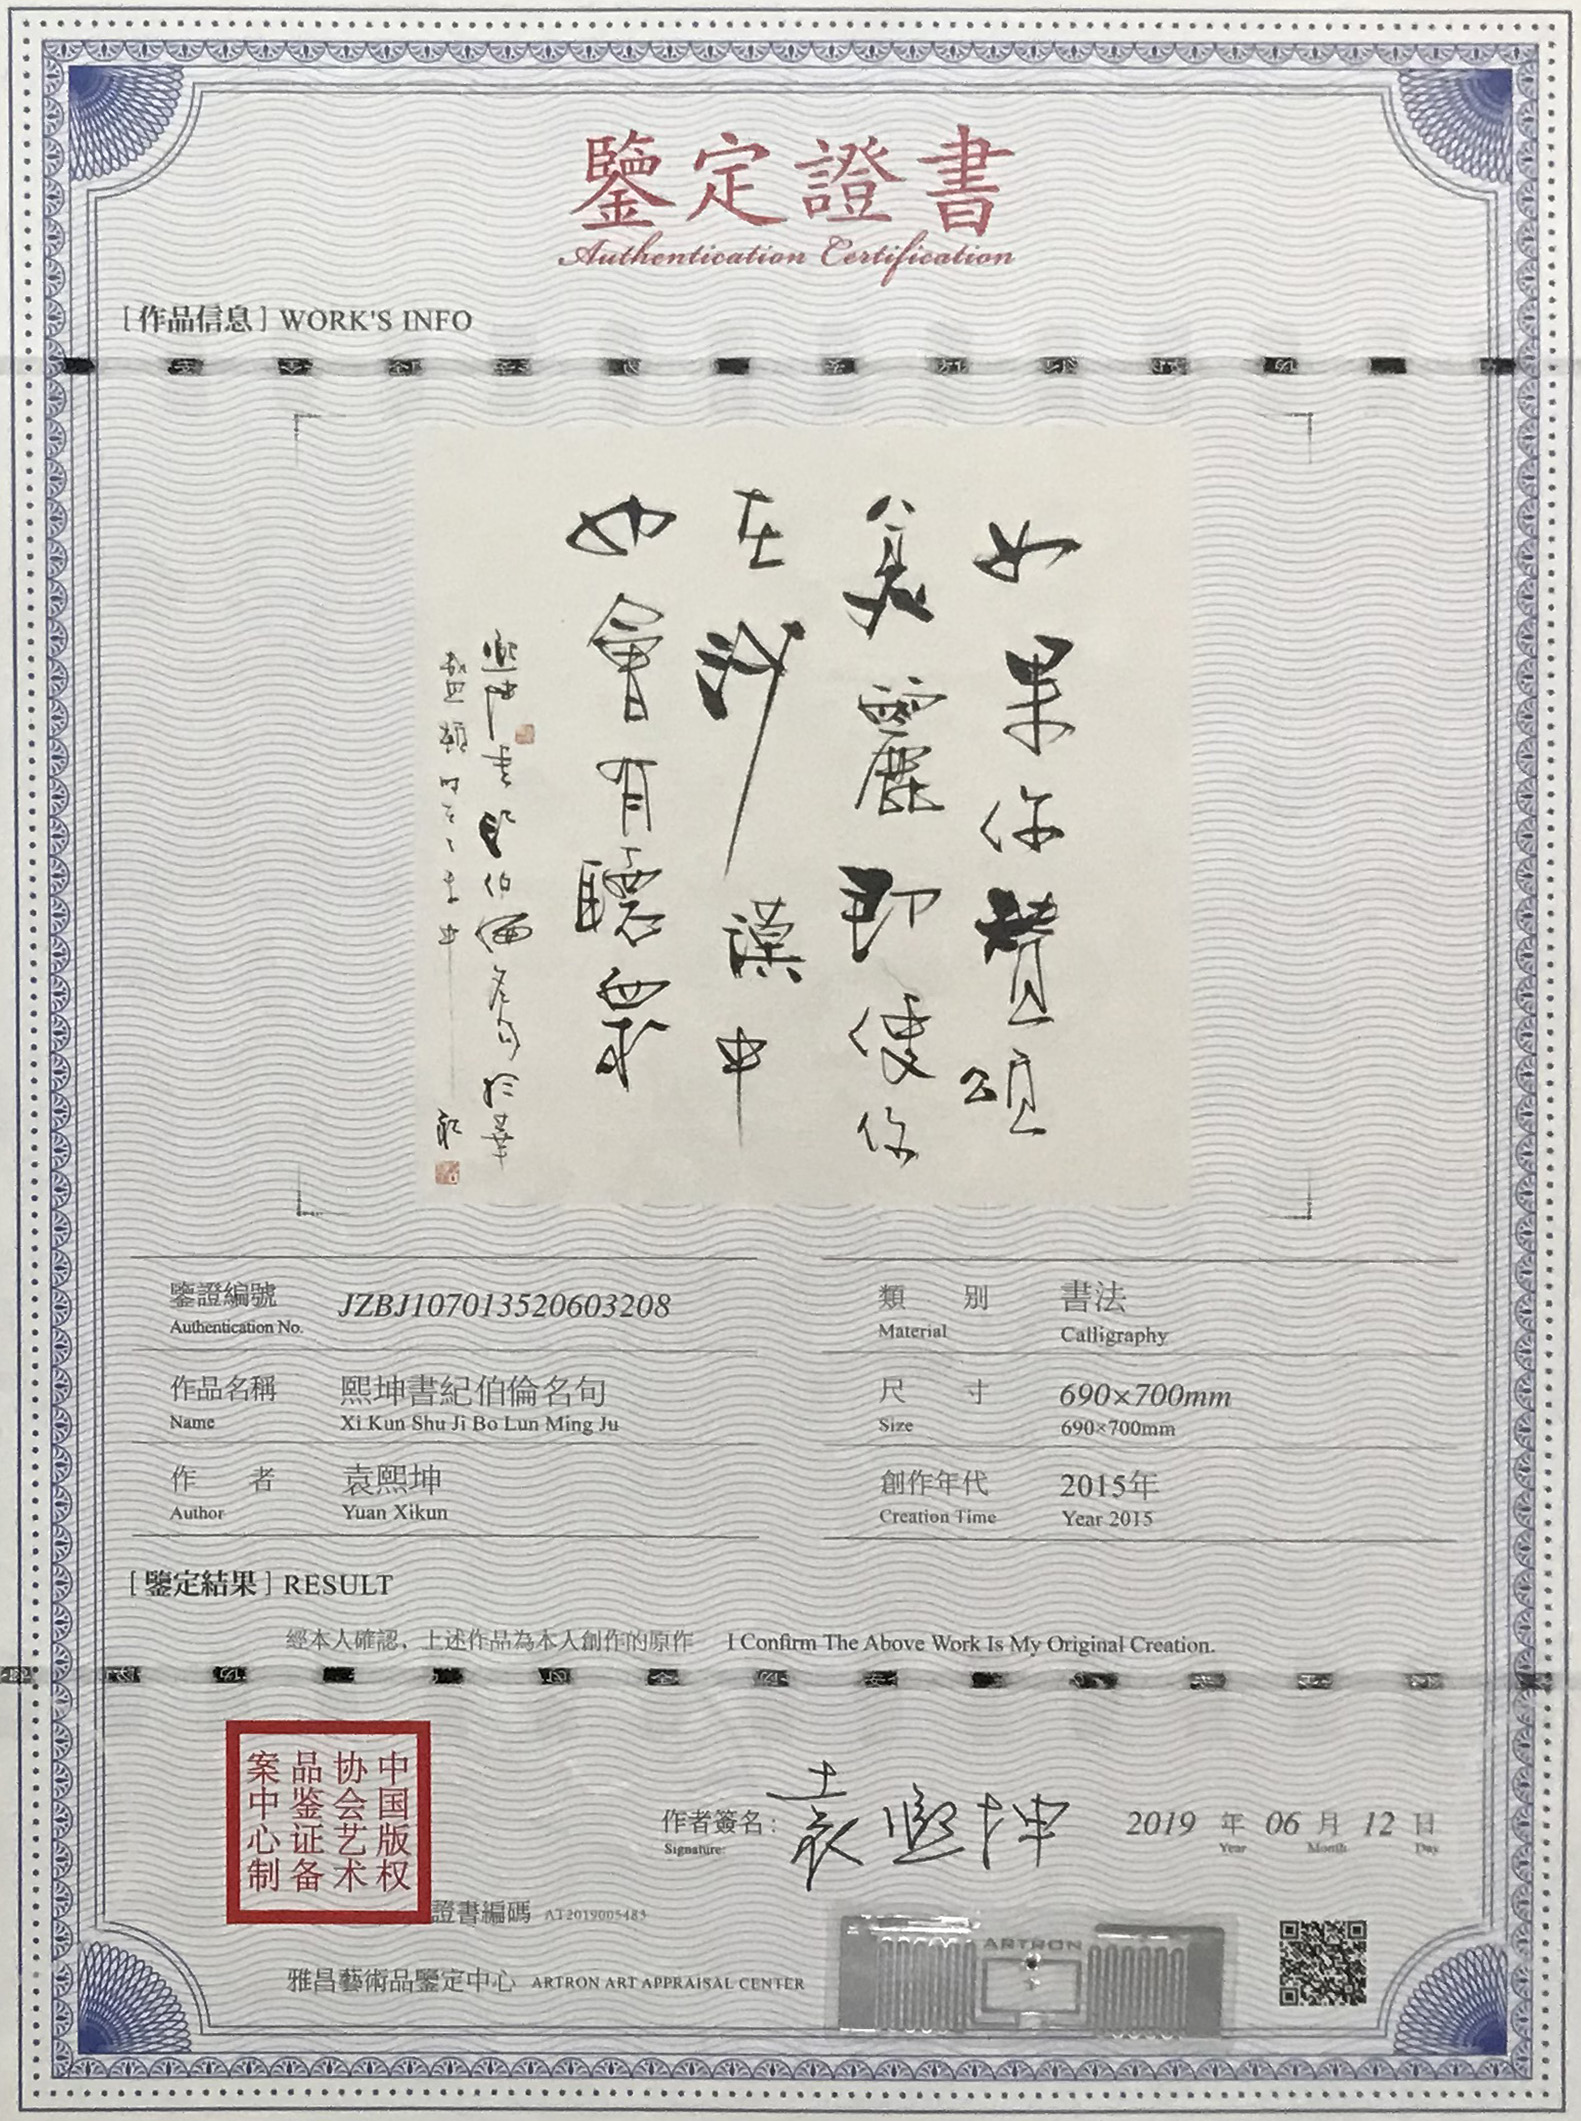 鑒定證書
Authentication Certification
[作品信息] WORK'S INFO
如果你贊頌
美麗即使你
在沙漠中
也會有聽眾
熙坤書紀伯倫名句於華
盛頓時
鑒證編號 JZBJ107013520603208
Authentication No.
類別 書法
Material Calligraphy
作品名稱 熙坤書紀伯倫名句
Name Xi Kun Shu Ji Bo Lun Ming Ju
尺寸 690×700mm
Size 690×700mm
作者 袁熙坤
Author Yuan Xikun
創作年代 2015年
Creation Time Year 2015
[鑒定結果] RESULT
經本人確認，上述作品為本人創作的原作 I Confirm The Above Work Is My Original Creation.
中国版权
协会艺术
品鉴证备
案中心制
作者簽名: 袁熙坤 2019 年 06 月 12 日
Signature: Year Month Day
證書編碼 AT2019005483
ARTRON
雅昌藝術品鑒定中心 ARTRON ART APPRAISAL CENTER